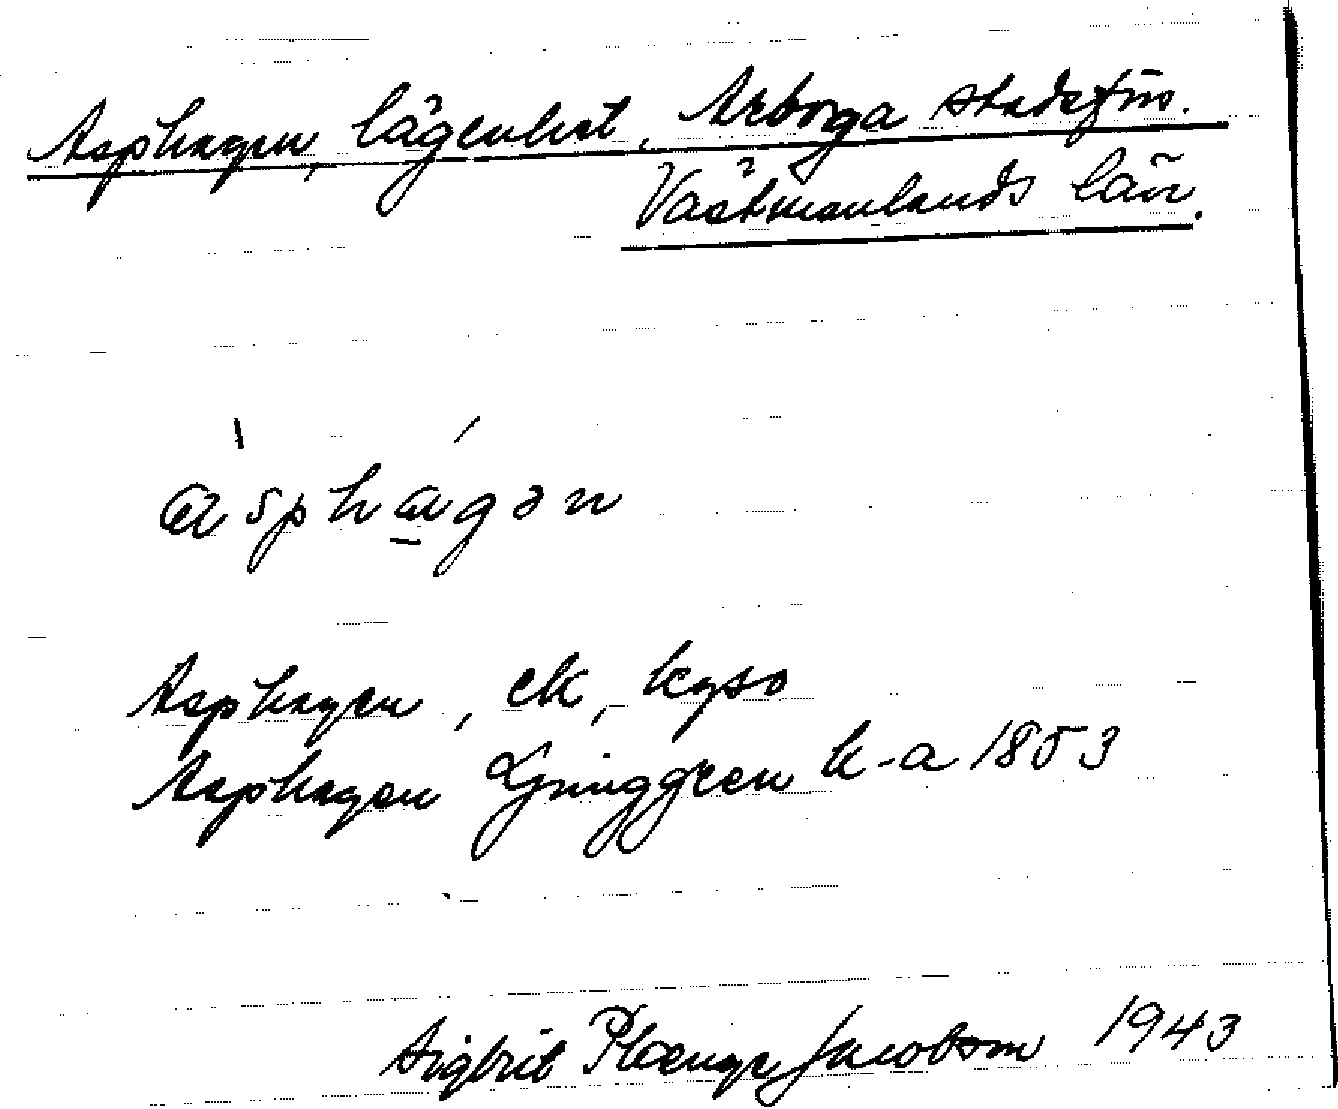 Asphagen, lägenhet, Arborga stadsförs.
Västmanlands län.
asphagən
Asphagen, ek, kyso
Asphagen Ljunggren k-a 1853
Sigbrit Plænge Jacobson 1943